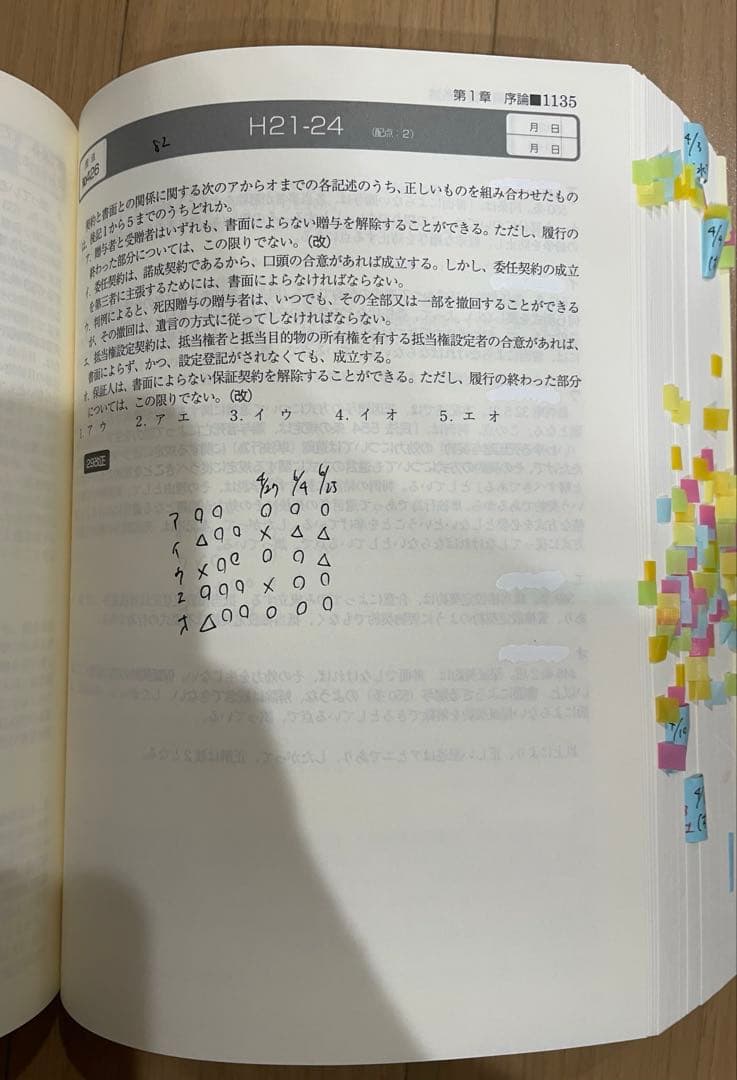 第1章 序論■1135
H21-24 (配点:2)
月 日
月 日
82
契約と書面との関係に関する次のアからオまでの各記述のうち、正しいものを組み合わせたもの
は、後記1から5までのうちどれか。
ア. 贈与者と受贈者はいずれも、書面によらない贈与を解除することができる。ただし、履行の
終わった部分については、この限りでない。(改)
イ. 委任契約は、諾成契約であるから、口頭の合意があれば成立する。しかし、委任契約の成立
を第三者に主張するためには、書面によらなければならない。
ウ. 判例によると、死因贈与の贈与者は、いつでも、その全部又は一部を撤回することができる
が、その撤回は、遺言の方式に従ってしなければならない。
エ. 抵当権設定契約は、抵当権者と抵当目的物の所有権を有する抵当権設定者の合意があれば、
書面によらず、かつ、設定登記がされなくても、成立する。
オ. 保証人は、書面によらない保証契約を解除することができる。ただし、履行の終わった部分
については、この限りでない。(改)
1. ア ウ 2. ア エ 3. イ ウ 4. イ オ 5. エ オ
29改正
4/27 6/4 6/23
ア ○ ○ ○ ○ ○
イ △ ○ ○ × △ △
ウ × ○ ○ ○ ○ △
エ ○ ○ ○ × ○ ○
オ △ ○ ○ ○ ○ ○
4/3